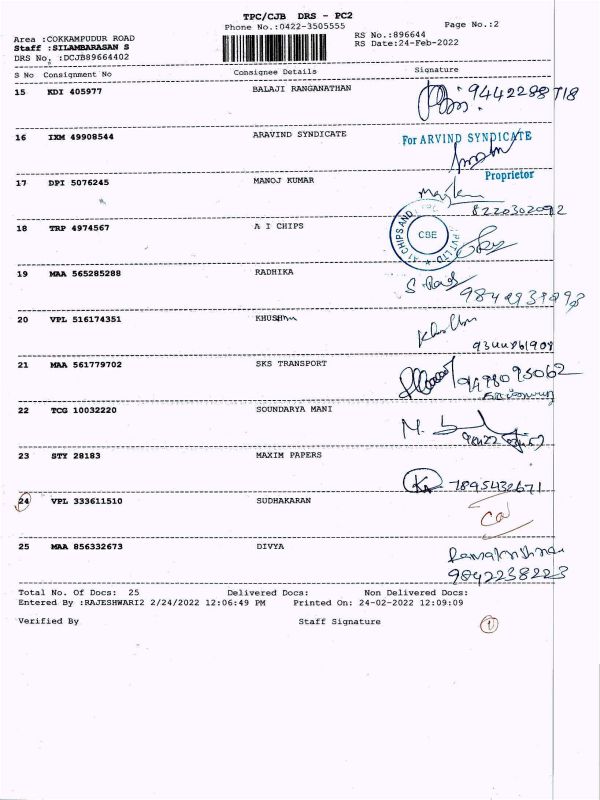 TPC/CJB DRS - PC2
Phone No.:0422-3505555
Page No.:2
Area :COKKAMPUDUR ROAD
RS No.:896644
Staff :SILAMBARASAN S
RS Date:24-Feb-2022
DRS No. :DCJB89664402
S No Consignment No Consignee Details Signature
15 KDI 405977 BALAJI RANGANATHAN
16 IXM 49908544 ARAVIND SYNDICATE For ARVIND SYNDICATE
Proprietor
17 DPI 5076245 MANOJ KUMAR
8220302092
18 TRP 4974567 A I CHIPS CSE
19 MAA 565285288 RADHIKA
20 VPL 516174351
21 MAA 561779702 SKS TRANSPORT
22 TCG 10032220 SOUNDARYA MANI
23 STY 28183 MAXIM PAPERS
7895432671
24 VPL 333611510 SUDHAKARAN
25 MAA 856332673 DIVYA
Ramakrishnan
9842238223
Total No. Of Docs: 25 Delivered Docs: Non Delivered Docs:
Entered By :RAJESHWARI2 2/24/2022 12:06:49 PM Printed On: 24-02-2022 12:09:09
Verified By Staff Signature